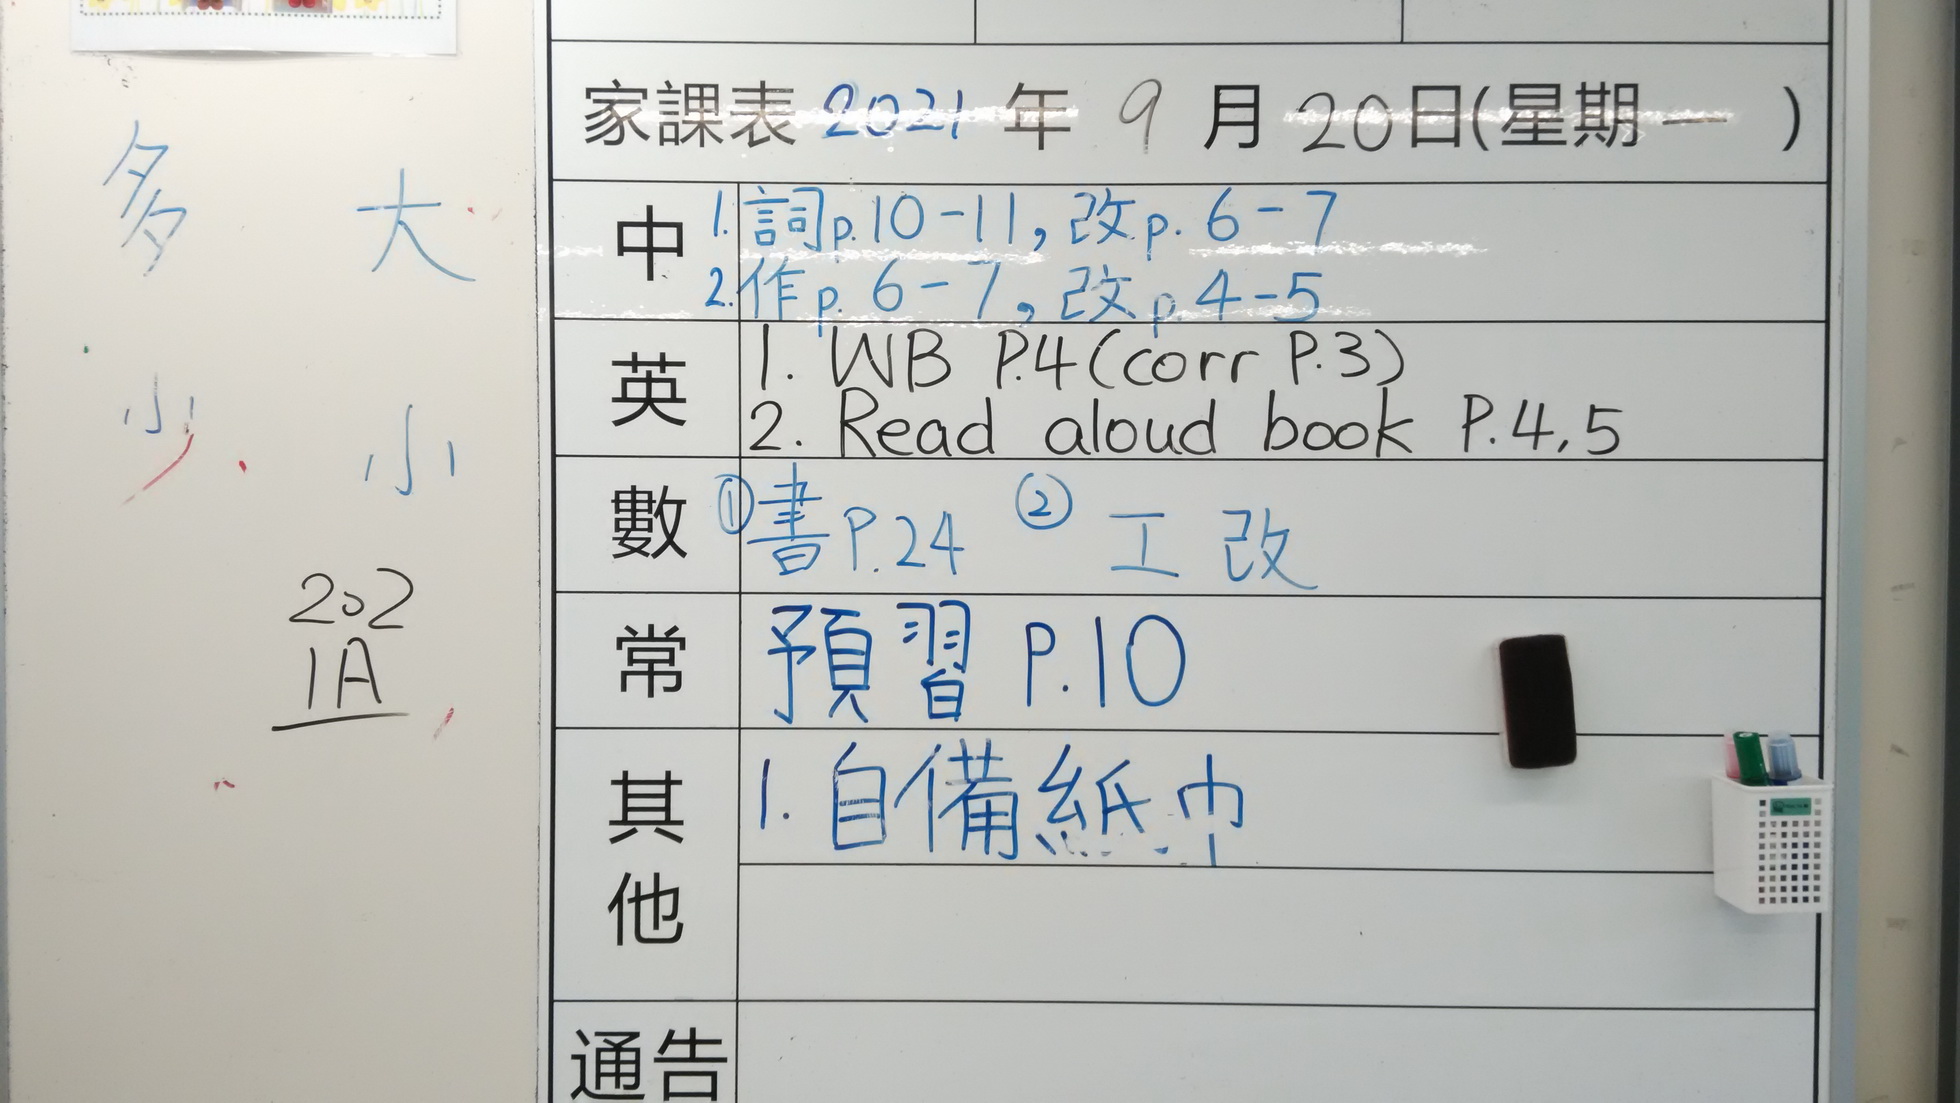 多 大
少 小
202
1A
家課表 2021 年 9 月 20 日(星期 一 )
中 1. 詞p.10-11, 改p. 6-7
2. 作p. 6-7, 改p. 4-5
英 1. WB P.4 (corr P.3)
2. Read aloud book P.4,5
數 ① 書P.24 ② 工 改
常 預習 P.10
其他 1. 自備紙巾
通告